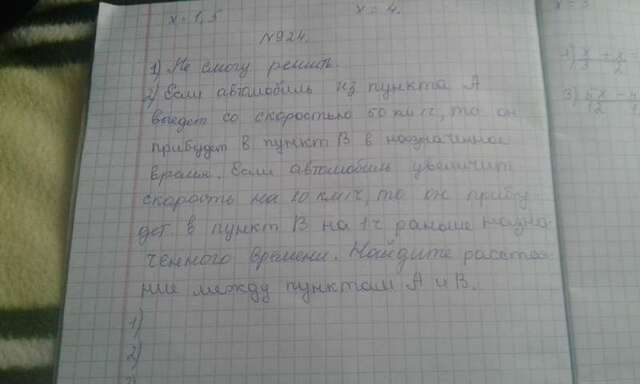 x = 1,5
x = 4.
№924.
1) Не смогу решить
2) Если автомобиль из пункта А
выедет со скоростью 50 км/ч, то он
прибудет в пункт В в назначенное
время. Если автомобиль увеличит
скорость на 10 км/ч, то он прибу
дет в пункт В на 1ч раньше назна
ченного времени. Найдите расстоя
ние между пунктами А и В.
1)
2)
1)
3)